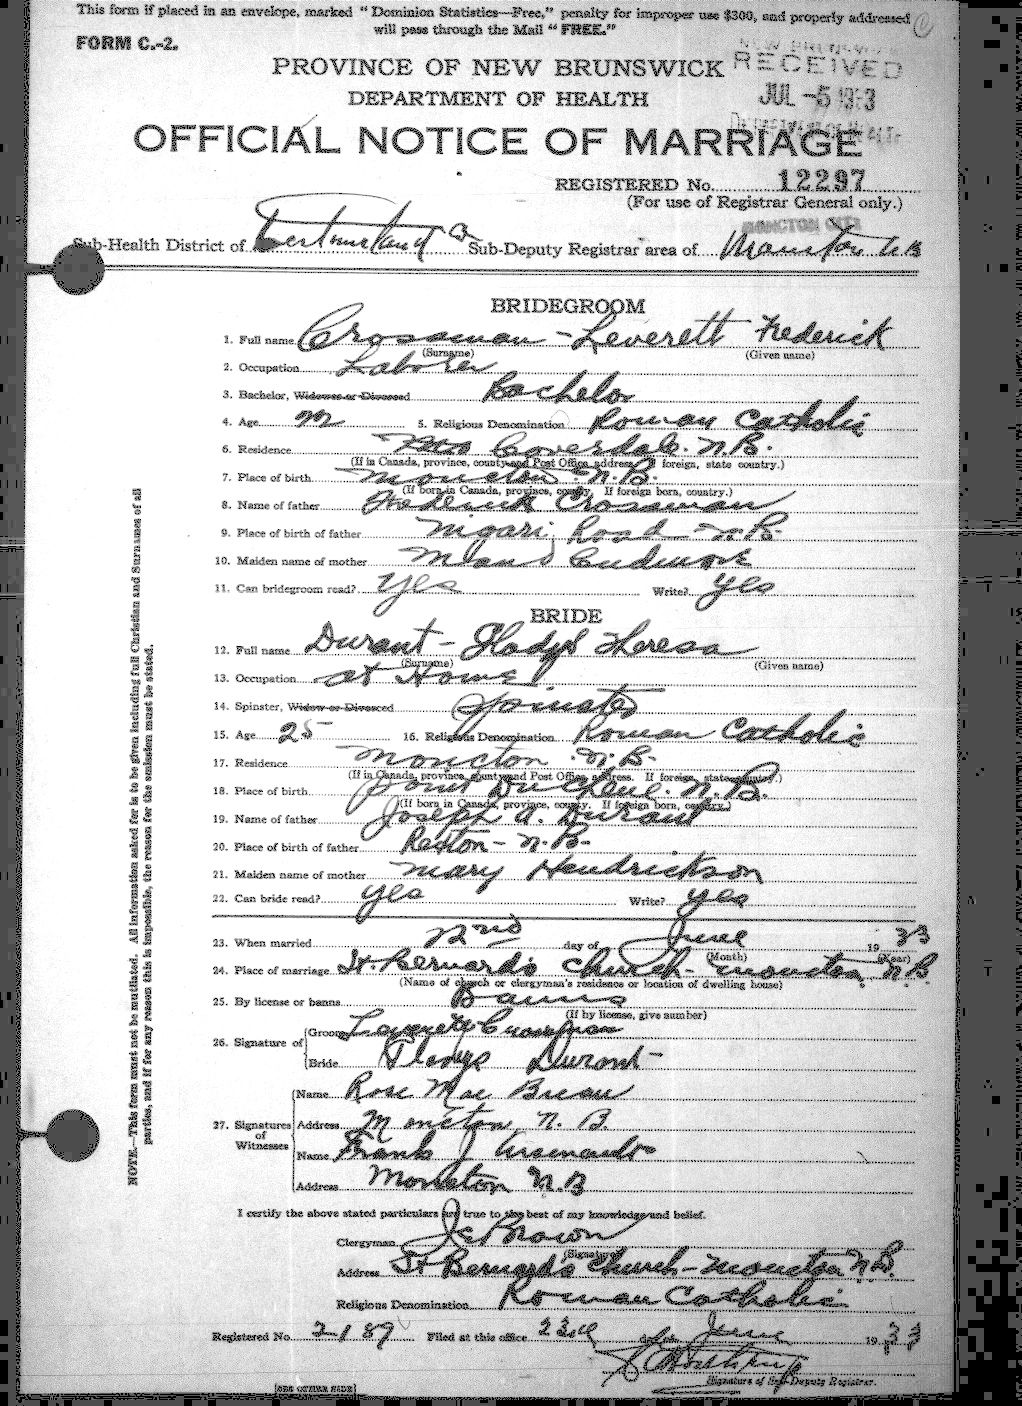 This form if placed in an envelope, marked "Dominion Statistics—Free," penalty for improper use $300, and properly addressed
will pass through the Mail "FREE."
FORM C.-2.
NEW BRUNSWICK
RECEIVED
JUL -5 1933
PROVINCE OF NEW BRUNSWICK
DEPARTMENT OF HEALTH
OFFICIAL NOTICE OF MARRIAGE
REGISTERED No. 12297
(For use of Registrar General only.)
MONCTON CITY
Sub-Health District of Westmorland Co Sub-Deputy Registrar area of Moncton N B
BRIDEGROOM
1. Full name Crossman - Leverett Frederick
(Surname) (Given name)
2. Occupation Laborer
3. Bachelor, Widower or Divorced Bachelor
4. Age 22 5. Religious Denomination Roman Catholic
6. Residence Coverdale. N.B.
(If in Canada, province, county and Post Office address. If foreign, state country.)
7. Place of birth Moncton N.B.
(If born in Canada, province, county. If foreign born, country.)
8. Name of father Frederick Crossman
9. Place of birth of father Road N.B.
10. Maiden name of mother
11. Can bridegroom read? Yes Write? Yes
BRIDE
12. Full name Durant - Gladys Theresa
(Surname) (Given name)
13. Occupation at Home
14. Spinster, Widow or Divorced Spinster
15. Age 25 16. Religious Denomination Roman Catholic
17. Residence Moncton N.B.
(If in Canada, province, county and Post Office address. If foreign, state country.)
18. Place of birth Point Du Chene. N.B.
(If born in Canada, province, county. If foreign born, country.)
19. Name of father Joseph A. Durant
20. Place of birth of father Rexton - N.B.
21. Maiden name of mother Mary Hendrickson
22. Can bride read? Yes Write? Yes
23. When married 22nd day of June 1933
(Month) (Year)
24. Place of marriage St. Bernard's Church - Moncton N.B
(Name of church or clergyman's residence or location of dwelling house)
25. By license or banns Banns
(If by license, give number)
26. Signature of Groom Leverett Crossman
Bride Gladys Durant
27. Signatures of Witnesses
Name Rose Mae Breau
Address Moncton N. B.
Name Frank J Arsenault
Address Moncton N.B
I certify the above stated particulars are true to the best of my knowledge and belief.
Clergyman Brown
(Signature)
Address St Bernard's Church - Moncton N.B.
Religious Denomination Roman Catholic
Registered No. 2189 Filed at this office 23rd day June 1933
Signature of Sub-Deputy Registrar.
(SEE OTHER SIDE)
NOTE.—This form must not be mutilated. All information asked for is to be given including full Christian and Surnames of all
parties, and if for any reason this is impossible, the reason for the omission must be stated.